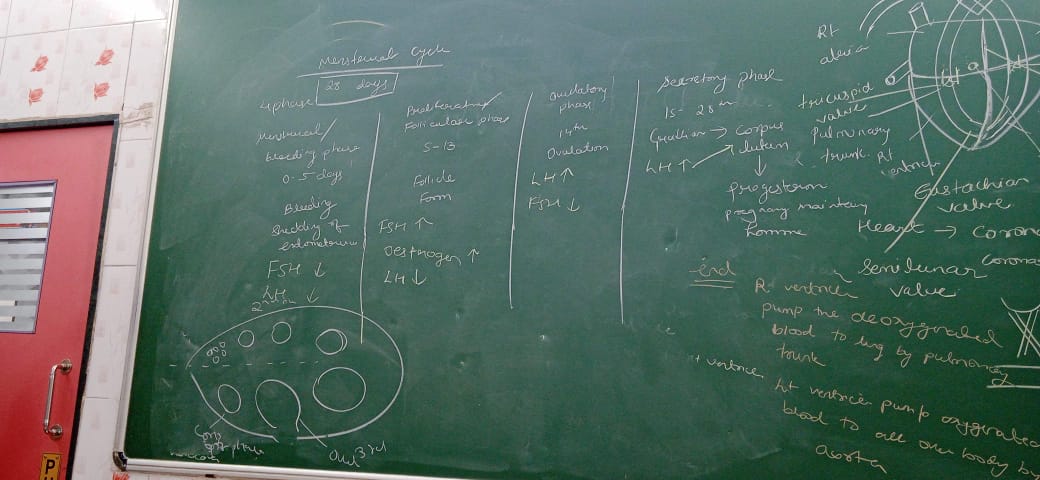 Menstrual Cycle
28 days
4 phase
Menstrual/
bleeding phase
0-5 days
Bleeding
Shedding of
endometrium
FSH ↓
LH ↓
Proliferatory/
Follicular phase
5-13
Follicle
Form
FSH ↑
Oestrogen ↑
LH ↓
Ovulatory
phase
14th
Ovulation
LH ↑
FSH ↓
Secretory phase
15-28th
→ Corpus
luteum
LH ↑
↓
Progestron
hormone
Rt
tricuspid
valve
Pulmonary
trunk
Rt
ventricle
Eustachian
valve
Heart → Corona
Semilunar
valve
end
Rt ventricle
pump the deoxygenated
blood to lung by pulmonary
trunk
Lt ventricle pump oxygenated
blood to all over body by
aorta
P